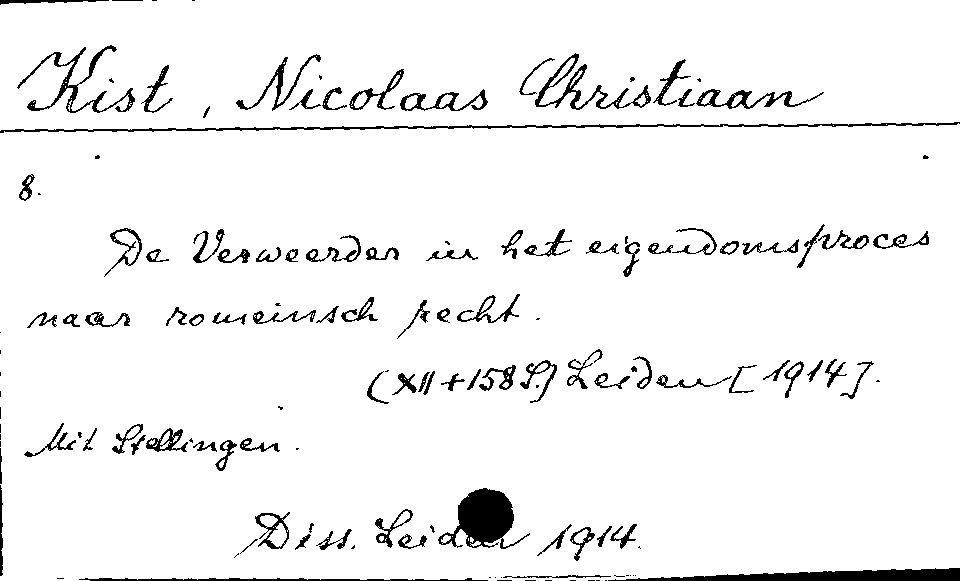 Kist, Nicolaas Christiaan
8.
De Verweerder in het eigendomsproces
naar romeinsch recht.
(XII+158 S.) Leiden [1914].
Mit Stellingen.
Diss. Leiden 1914.